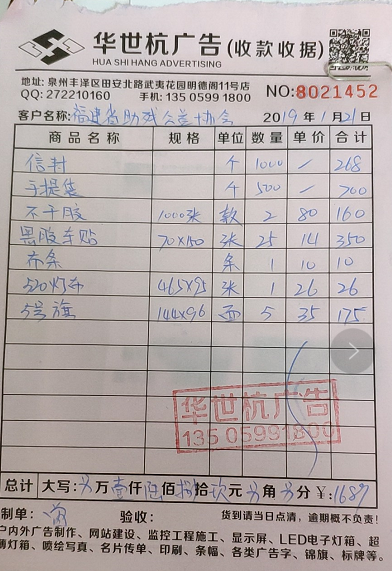 华世杭广告 (收款收据)
HUA SHI HANG ADVERTISING
地址: 泉州丰泽区田安北路武夷花园明德阁11号店
QQ: 272210160 手机: 135 0599 1800 NO:8021452
客户名称: 福建省助残公益协会 2019年1月21日
商品名称 规格 单位 数量 单价 合计
信封 个 1000 / 268
手提袋 个 500 / 700
不干胶 1000张 款 2 80 160
黑胶车贴 70×150 张 25 14 350
布条 条 1 10 10
320灯布 465×95 张 1 26 26
5号旗 144×96 面 5 35 175
华世杭广告
135 05991800
总计 大写: 万 壹仟 陆佰 捌拾 玖元 角 分 ¥: 1689
制单: 验收: 货到请当日点清，逾期概不负责!
户内外广告制作、网站建设、监控工程施工、显示屏、LED电子灯箱、超
薄灯箱、喷绘写真、名片传单、印刷、条幅、各类广告字、锦旗、标牌等。